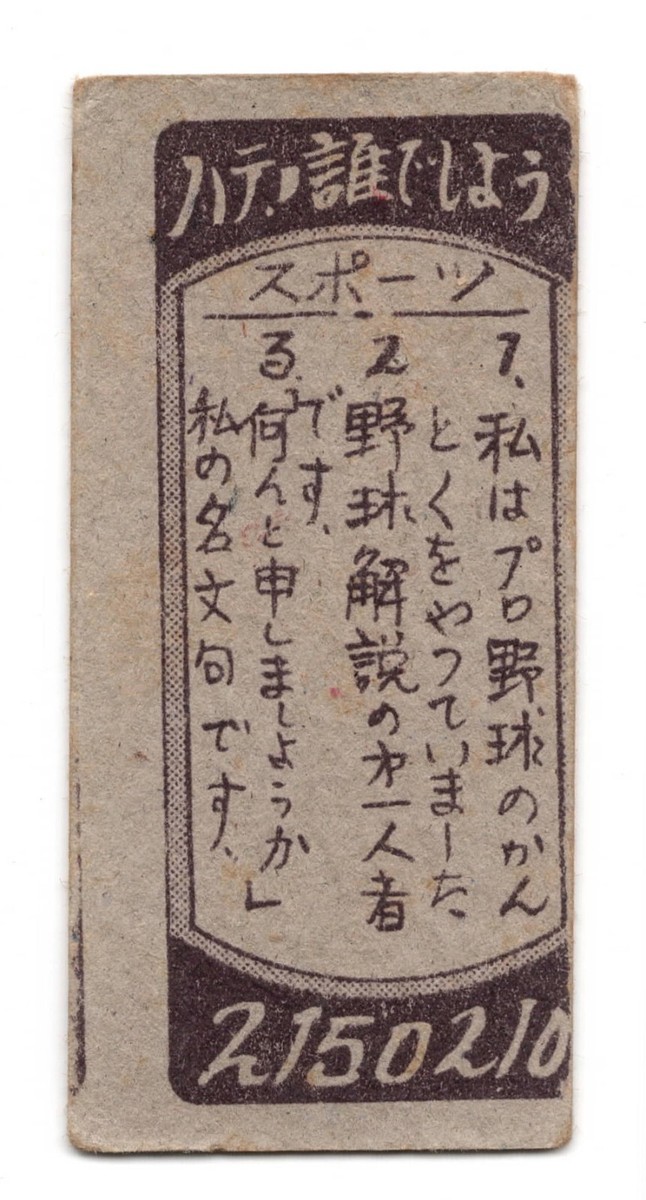 ハテナ誰でしよう
スポーツ
1、私はプロ野球のかん
とくをやつていました、
2、野球解説の才一人者
です、
3、「何んと申しましようか」
私の名文句です、
2150210